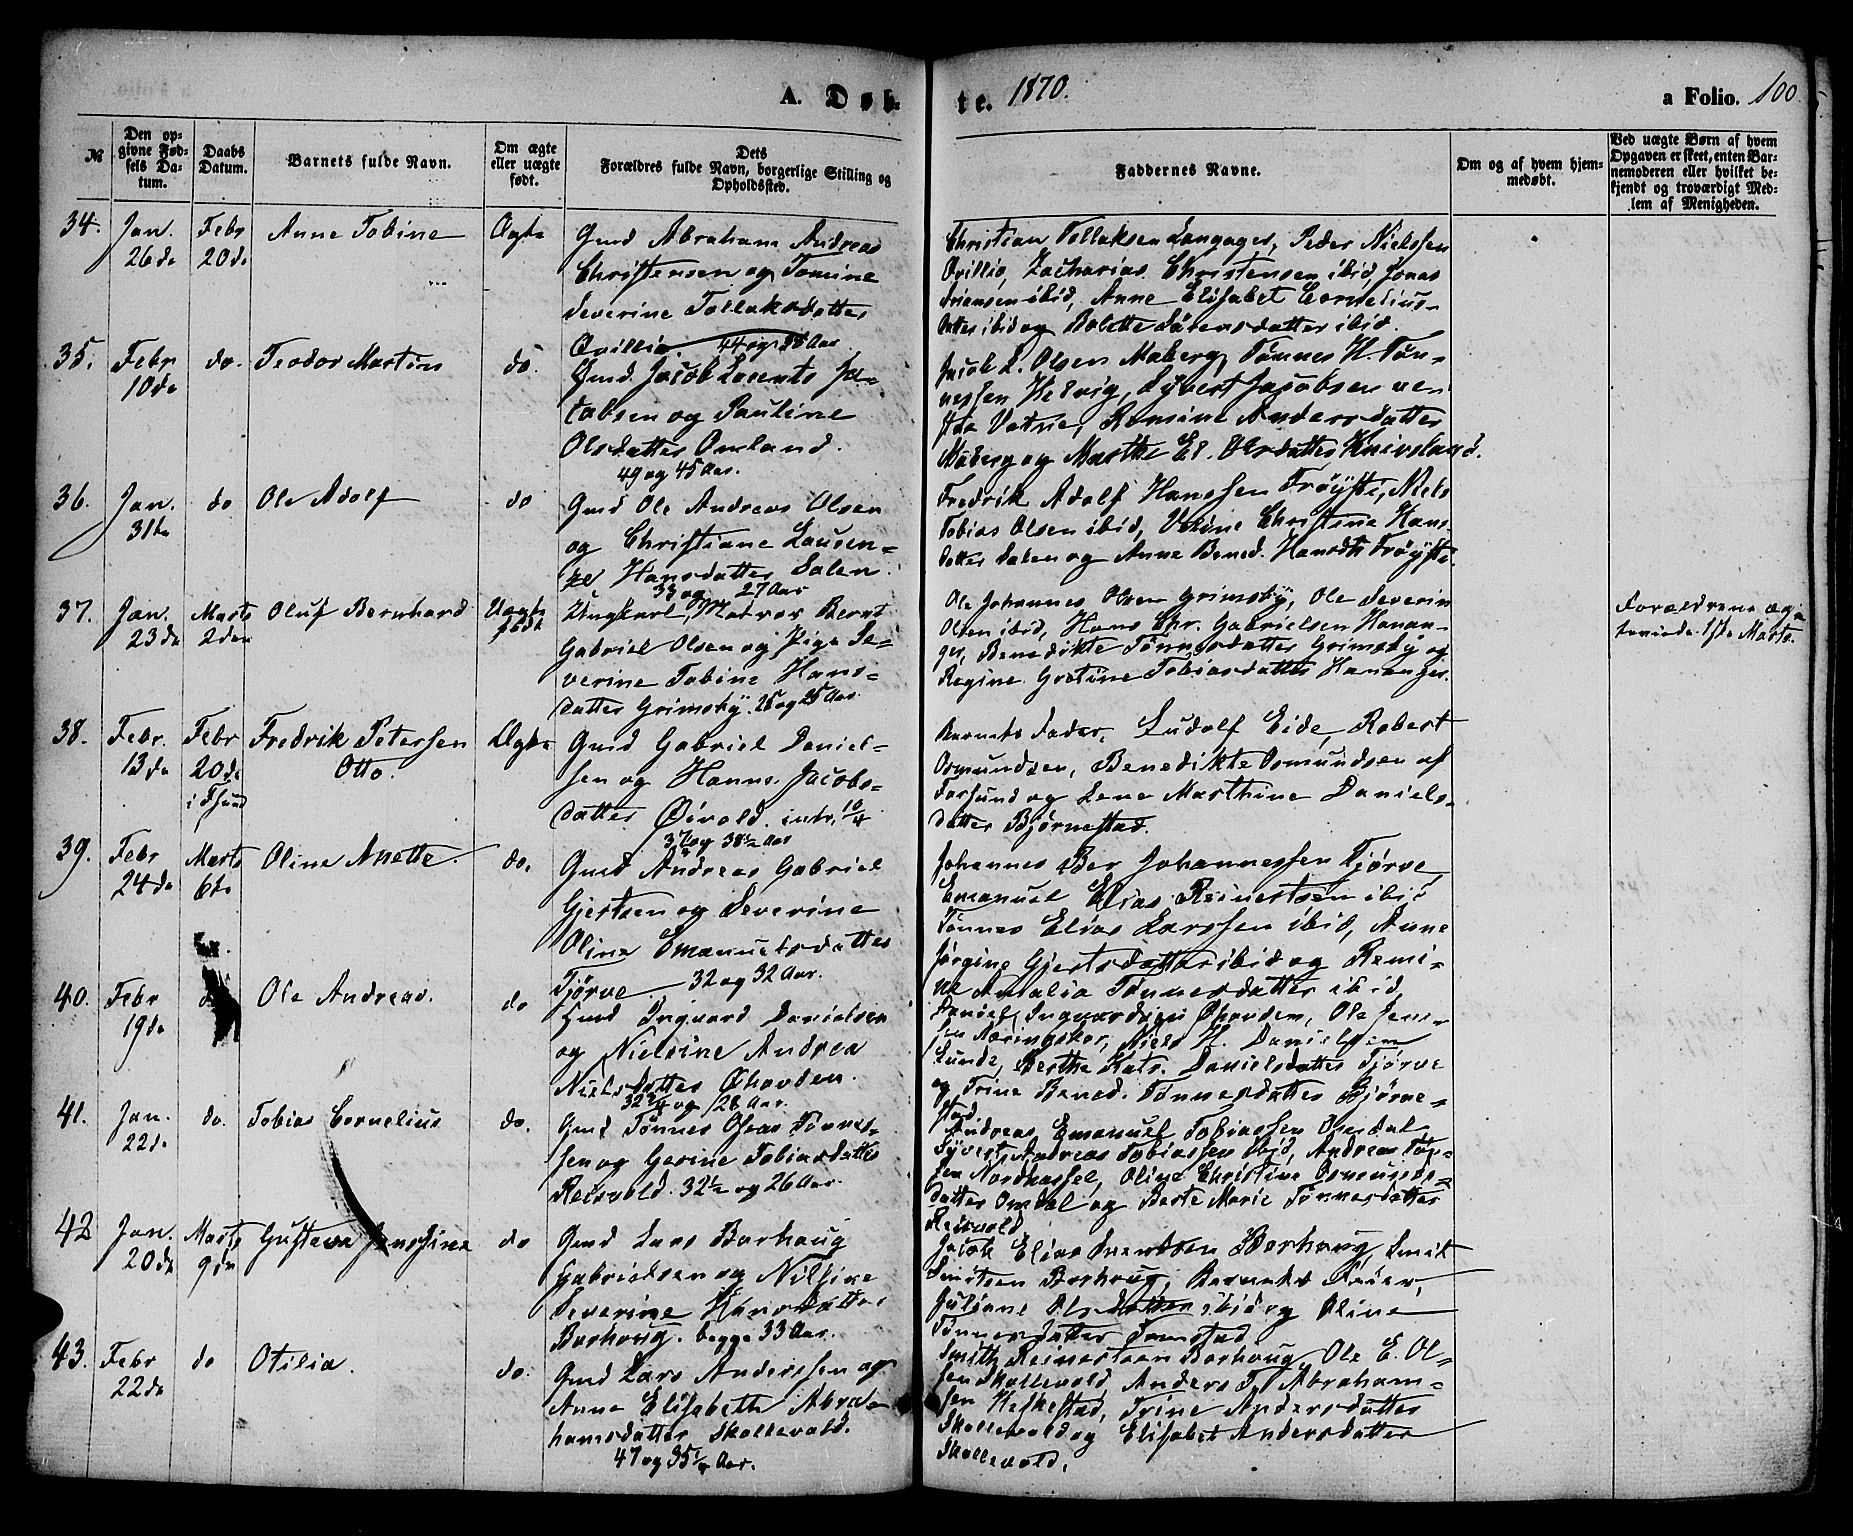 A. Døb-
te. 1870.
a Folio. 100.
No
Den op-
givne Fød-
sels Da-
tum.
Daabs
Datum.
Barnets fulde Navn.
Om ægte
eller uægte
født.
Dets
Forældres fulde Navn, borgerlige Stilling og
Opholdssted.
Faddernes Navne.
Om og af hvem hjem-
medøbt.
Ved uægte Børn af hvem
Opgaven er skeet, enten Bar-
nemoderen eller hvilket be-
kjendt og troværdigt Med-
lem af Menigheden.
34. Jan. 26de
Febr 20de
Anne Tobine
Ægte
Gmd Abraham Andreas
Christensen og Tomine
Severine Tollaksdatter
Qvillio. 44 og 38 Aar
Christian Tollaksen Langager, Peder Nielssen
Qvillio, Zacharias Christensen ibid, Jonas
Ariansen ibid, Anne Elisabet Cornelius-
datter ibid og Bolette Sørensdatter ibid.
35. Febr 10de
do.
Teodor Martin
do.
Gmd. Jacob Lorents Ja-
cobsen og Pauline
Olsdatter Omland.
49 og 45 Aar.
Jacob L. Olsen Maberg, Tønnes H. Tøn-
nessen Helvig, Sybert Jacobsen ve-
stre Vatne, Romine Andersdatter
Maberg og Marthe El. Olsdatter Knivsland.
36. Jan. 31te
do
Ole Adolf
do
Gmd Ole Andreas Olsen
og Christiane Lausen-
ze Hansdatter Dalen.
38 og 27 Aar
Fredrik Adolf Hanssen Frøytte, Niels
Tobias Olsen ibid, Verine Christine Hans-
datter Dalen og Anne Bened. Hansdtr Frøytte.
37. Jan. 23de
Marts 2den
Oluf Bernhard
Uægte
Ungkarl, Matros Bernt
Gabriel Olsen og Pige Se-
verine Tobine Hans-
datter Grimsby. 25 og 25 Aar.
Ole Johannes Olsen Grimsby, Ole Severin
Olsen ibid, Hans Chr. Gabrielsen Hanan-
ger, Benedikte Tønnesdatter Grimsby og
Regine Gretine Tobiasdatter Hananger.
Forældrene ægte-
1ste Marts.
38. Febr. 13de
Febr 20de
i Fsund
Fredrik Petersen
Otto.
Ægte
Gmd Gabriel Daniel-
sen og Hanne Jacobs-
datter Øivold. intr. 10/4
37 og 38½ Aar
Barnets Fader, Ludolf Eide, Robert
Osmundsen, Benedikte Osmundsen af
Farsund og Lene Marthine Daniels-
datter Bjørnestad.
39. Febr 24de
Marts 6te
Oline Anette.
do.
Gmd Andreas Gabriel
Gjertsen og Severine
Oline Emanuelsdatter
Tjørve. 32 og 32 Aar.
Johannes Ber Johannessen Tjørve,
Emanuel Elias Reinertsen ibid
Tønnes Elias Larssen ibid, Anne
Jørgine Gjertsdatter ibid og Remi-
ne Amalia Tønnesdatter ibid,
40. Febr 19de
Ole Andreas.
do
Gmd Ingvard Danielsen
og Nielsine Andrea
Nielsdatter Øhovden.
32¾ og 28 Aar.
Daniel Ingvardsen Øhovden, Ole Jens-
sen Næringskar, Niels H. Danielsen
Lunde, Berthe Katr. Danielsdatter Tjørve
og Trine Bened. Tønnesdatter Bjørne-
stad.
41. Jan. 22de
do.
Tobias Cornelius
do.
Gmd Tønnes Oseas Tønnes-
sen og Gesine Tobiasdatter
Reisvold. 32½ og 26 Aar.
Andreas Emanuel Tobiassen Omdal
Syvert Andreas Tobiassen ibid, Andreas Tøn-
sen Nordhassel, Oline Christine Osmunds-
datter Omdal og Berte Marie Tønnesdatter
Reisvold
42 Jan. 20de
Marts 9de
Gustava Jenssine
do
Gmd Lars Borhaug
Gabrielsen og Nilsine
Severine Hansdatter
Borhaug. begge 33 Aar.
Jacob Elias Svendsen Borhaug, Smit
Smitsen Borhaug, Barnets Fader,
Juliane Olsdatter ibid og Oline
Tønnesdatter Tomstad
43. Febr 22de
do
Otilia.
do.
Gmd Lars Anderssen og
Anne Elisabeth Abra-
hamsdatter Skollevold.
47 og 35¼ Aar.
Smith Reinertsen Borhaug, Ole E. Ol-
sen Skollevold, Anders T. Abraham-
sen Heskestad, Trine Andersdatter
Skollevold og Elisabet Andersdatter
Skollevold.